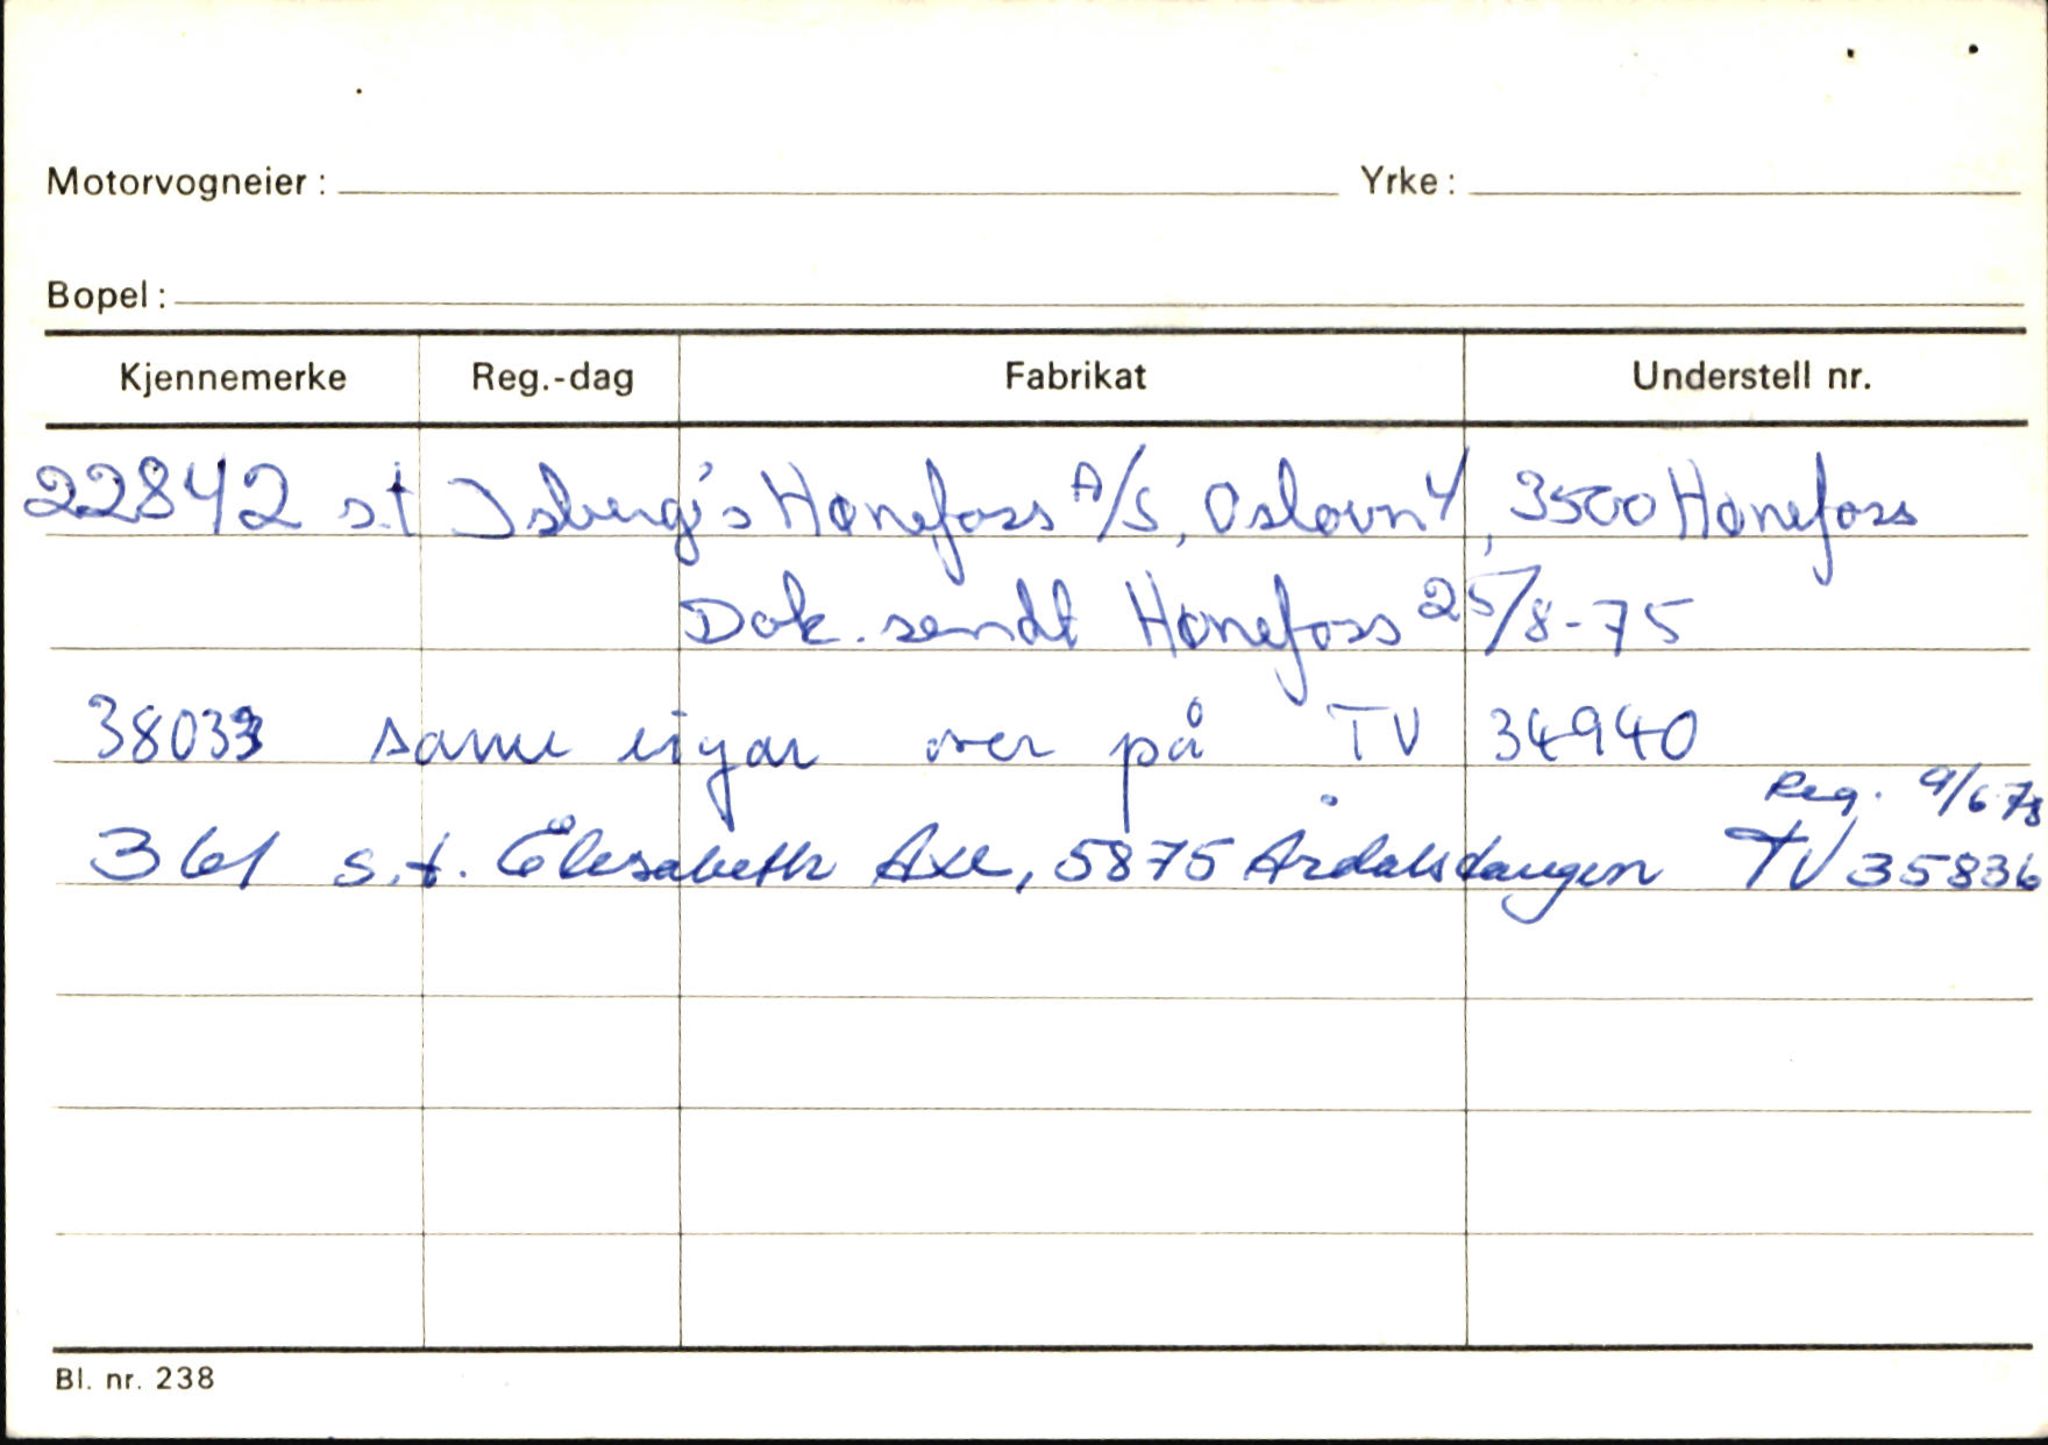 Motorvogneier: Yrke:
Bopel:
Kjennemerke Reg.-dag Fabrikat Understell nr.
22842 s.t Isberg's Hønefoss A/S, Oslovn 4, 3500 Hønefoss
Dok. sendt Hønefoss 25/8-75
38033 same eigar over på TV 34940
Reg. 9/6 78
361 s.t. Elisabeth Axe, 5875 Årdalstangen TV 35836
Bl. nr. 238